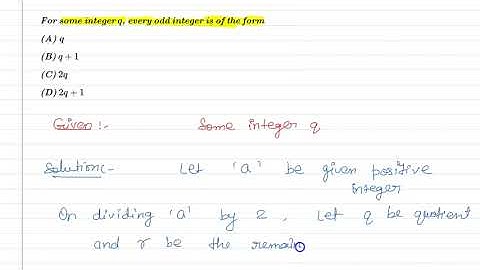 For some integer q, every odd integer is of the form
(A) q
(B) q + 1
(C) 2q
(D) 2q + 1
Given :- Some integer q
Solution:- Let 'a' be given positive
integer
On dividing 'a' by 2 , Let q be quotient
and r be the remain